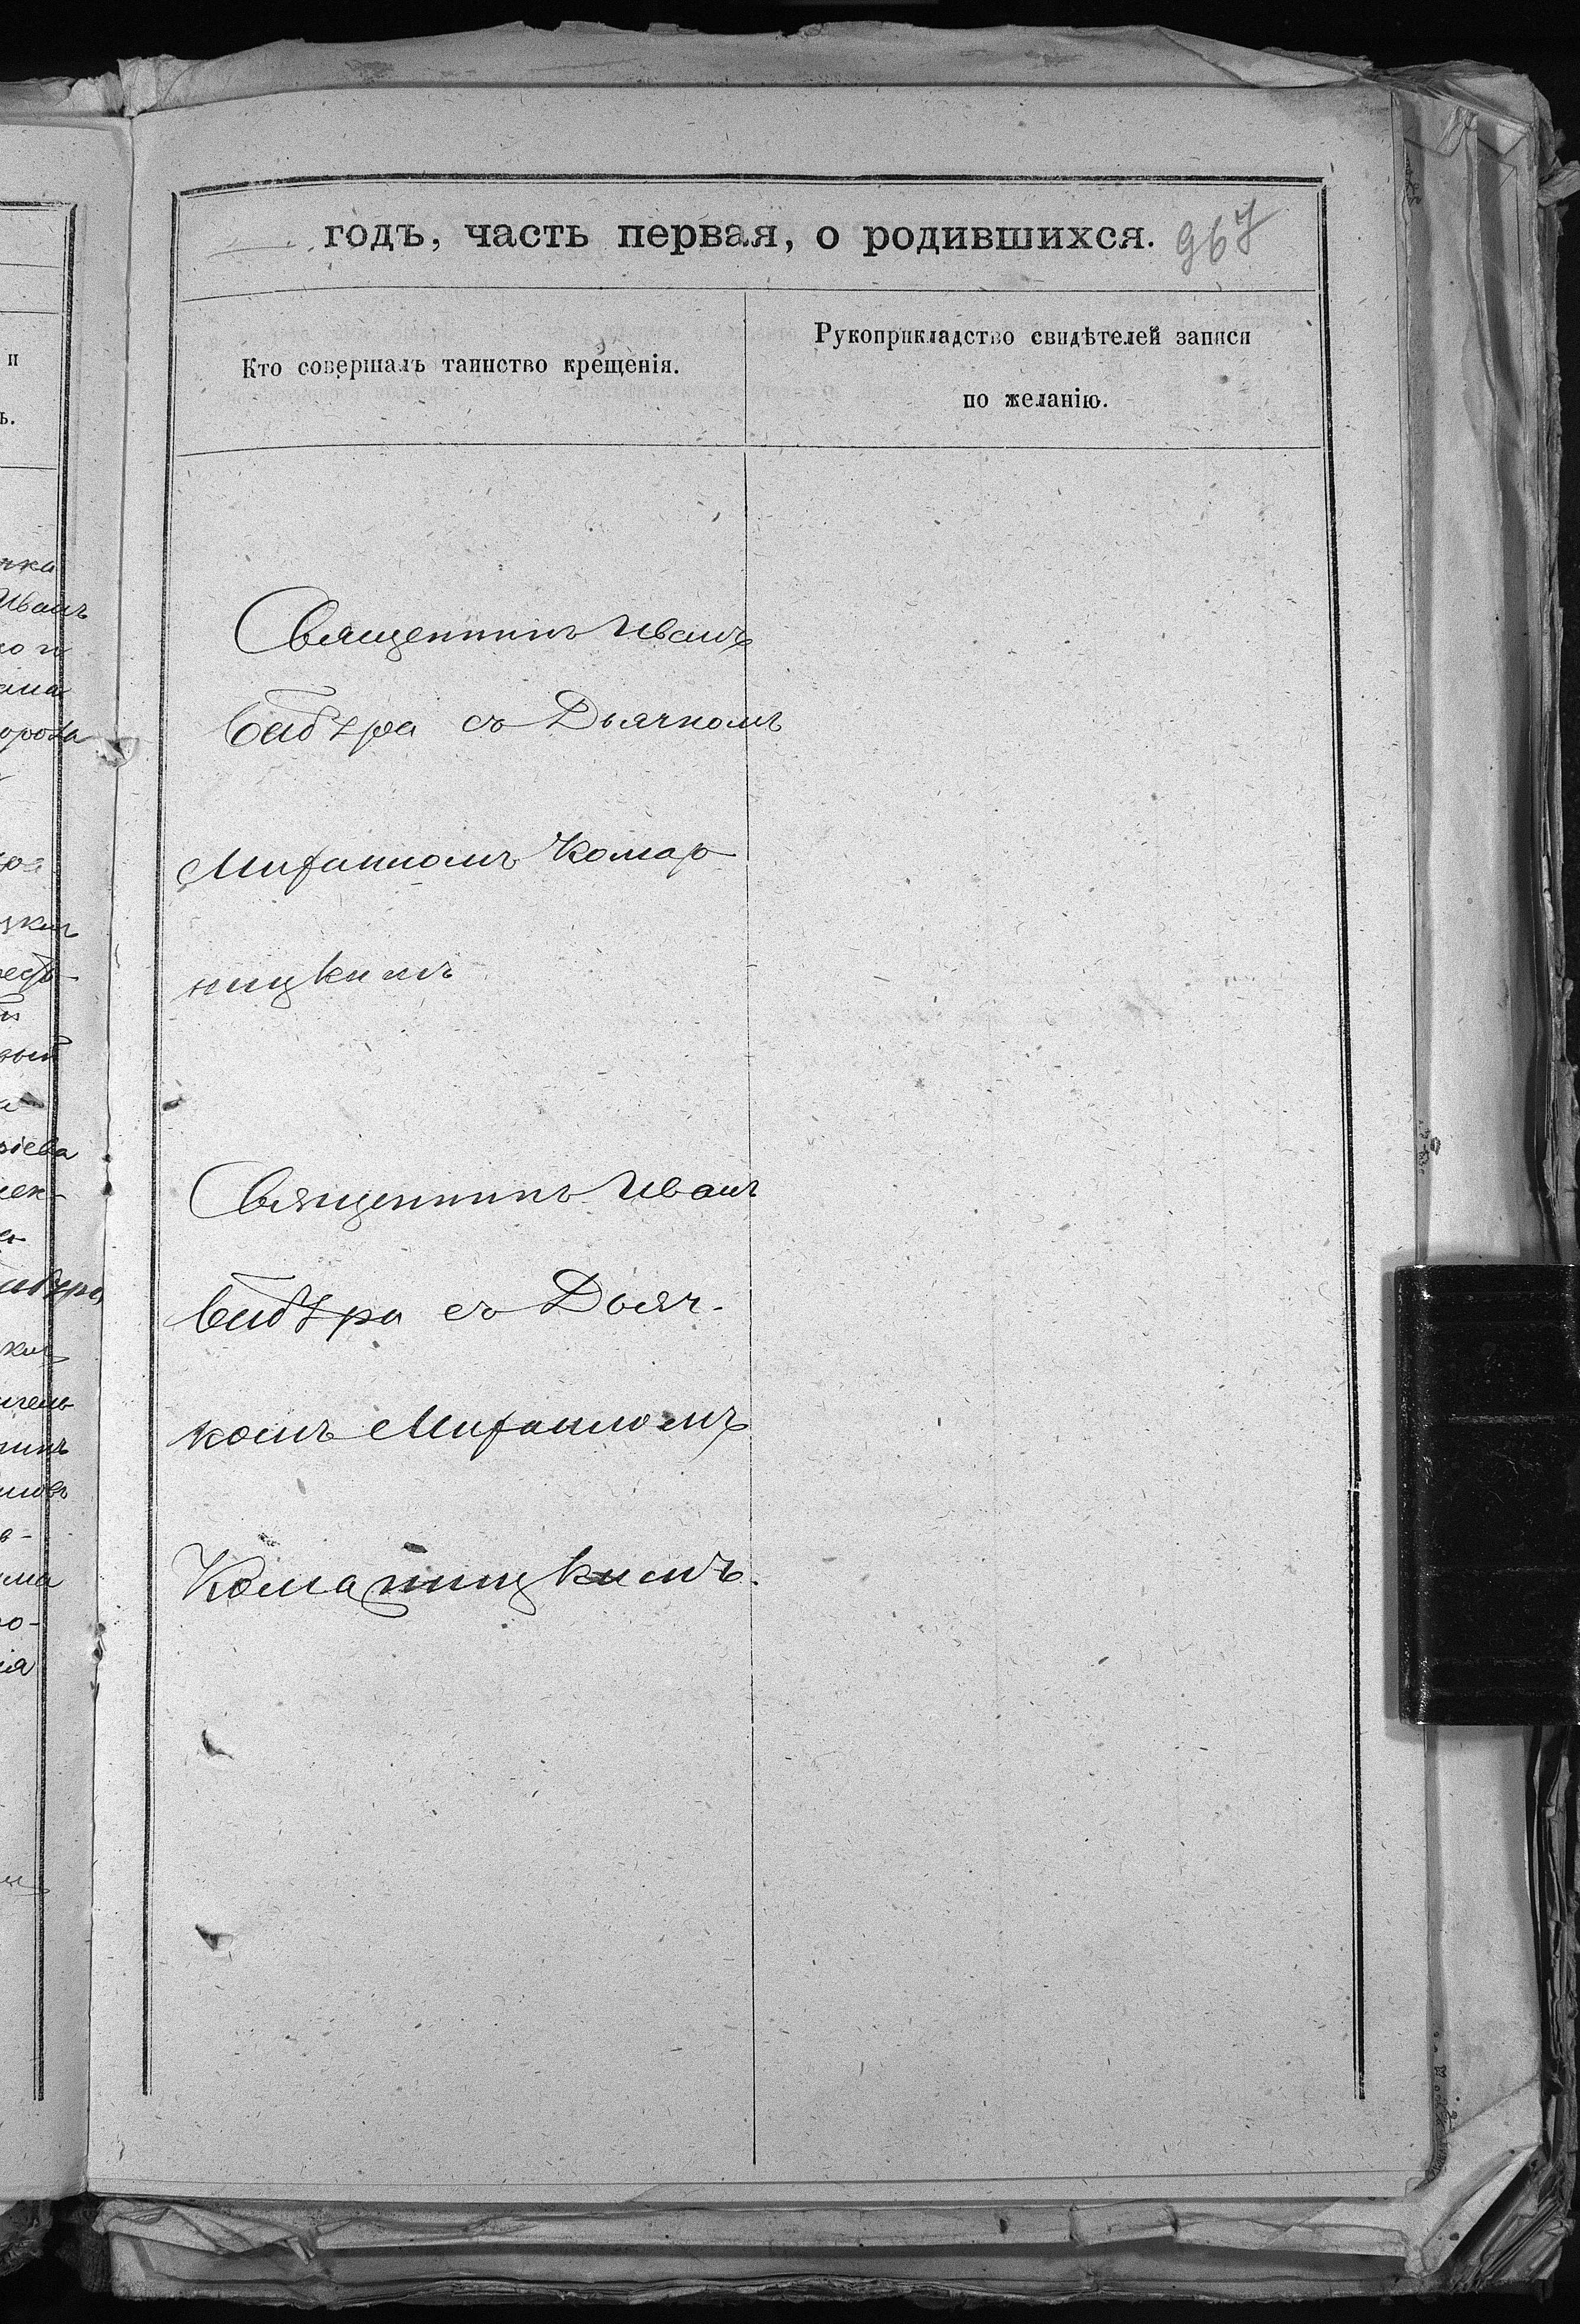 годъ, часть первая, о родившихся. 967
Кто совершалъ таинство крещенія.
Рукоприкладство свидѣтелей записи
по желанію.
Священникъ Иванъ
съ Дьячкомъ
Михаиломъ Комар
ницкимъ
Священникъ Иванъ
съ Дьяч-
комъ Михаиломъ
Комарницкимъ.